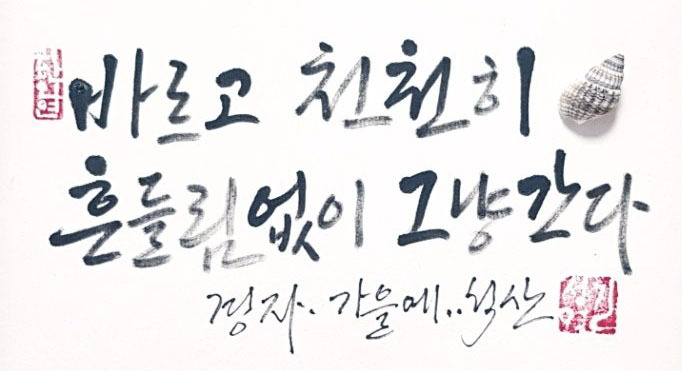 바르고 천천히
흔들림없이 그냥간다
경자. 가을에..